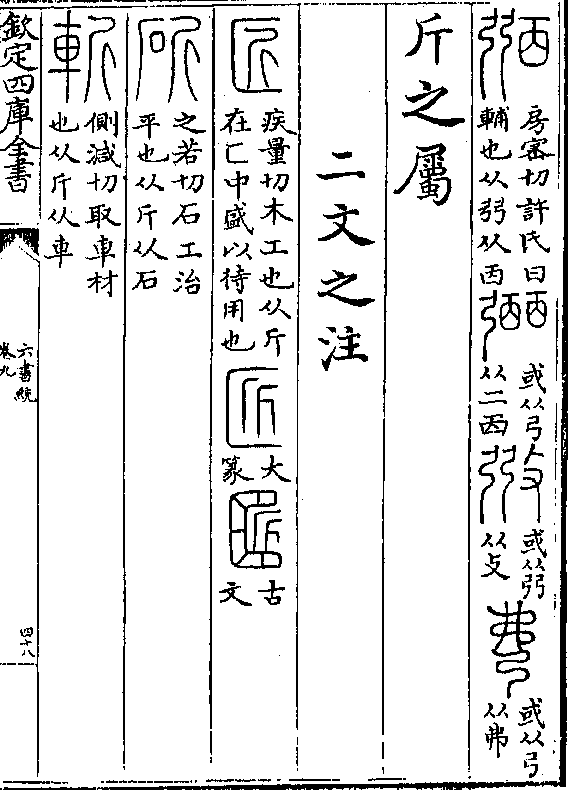 弼
房宻切許氏曰
輔也从弜从㐁
或从弓
从二丙
或从弜
从攴
或从弓
从弗
斤之屬
二文之注
匠
疾量切木工也从斤
在匚中盛以待用也
大
篆
古
文
斫
之若切石工治
平也从斤从石
斬
側減切取車材
也从斤从車
欽定四庫全書
六書統
卷九
四十八